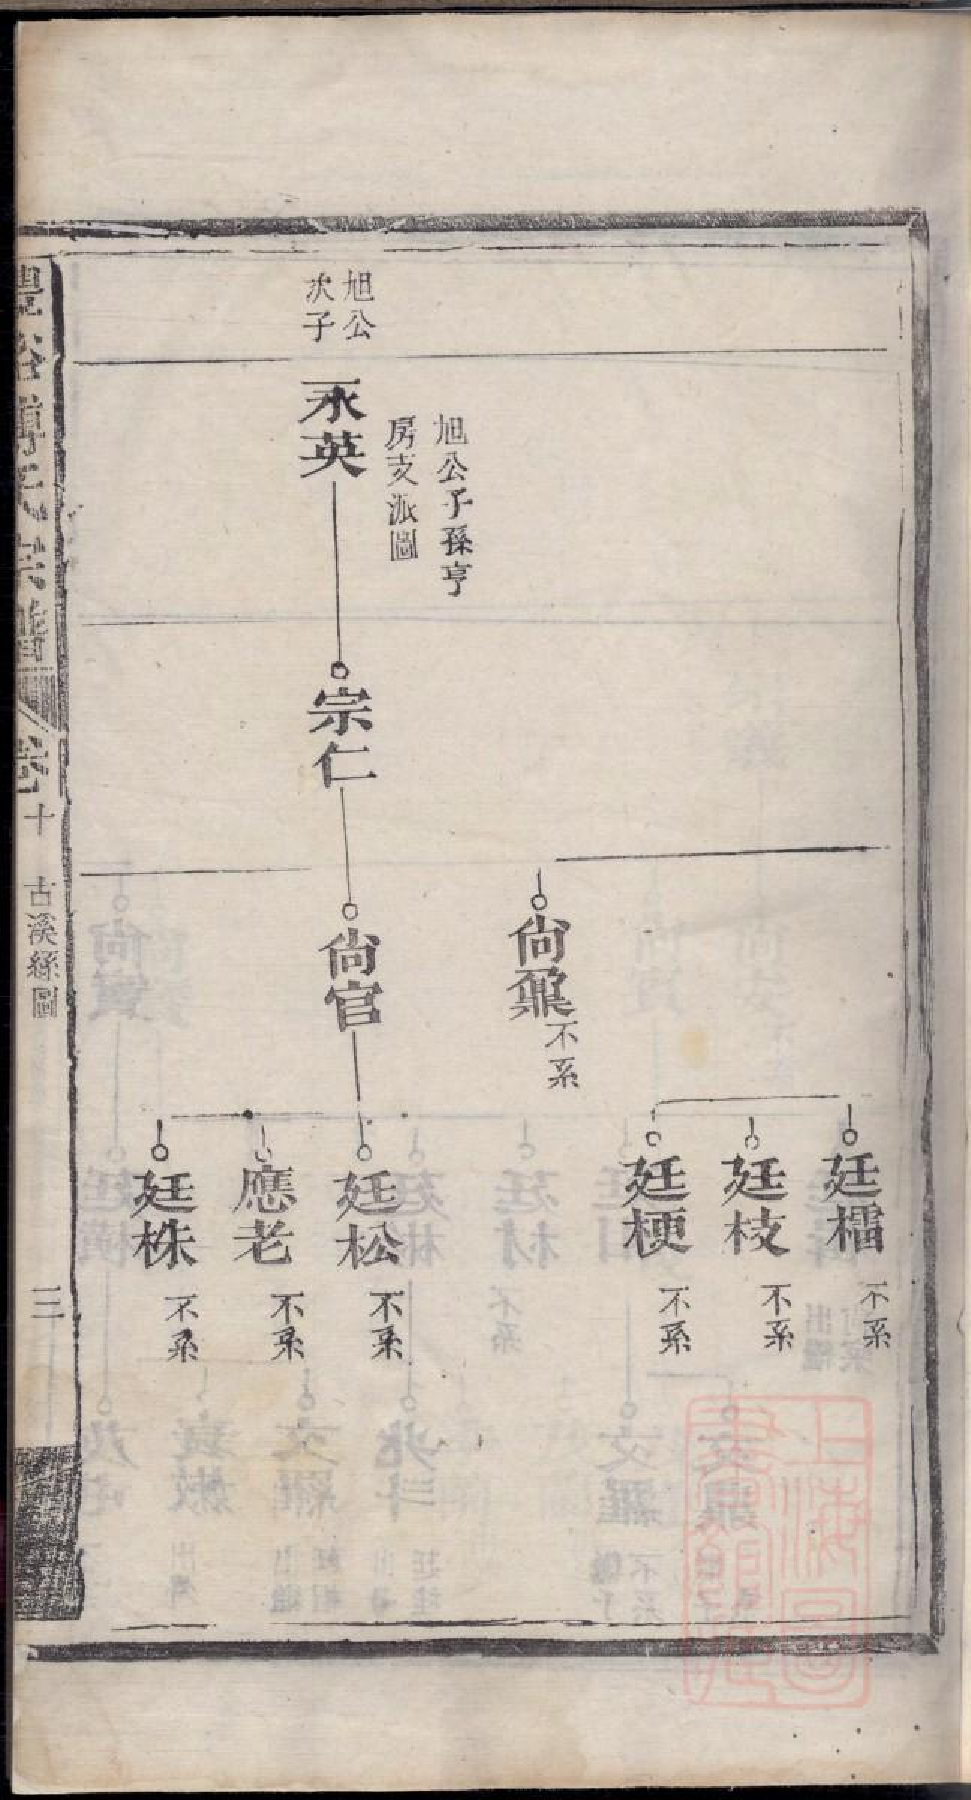 旭公子孫亨
房支派圖
旭公
次子
永英
宗仁
尙鼐 不系
尙官
廷檑 不系
廷枝 不系
廷梗 不系
廷松 不系
應老 不系
廷株 不系
氏宗譜 卷十 古溪綫圖 三
上海圖書館藏